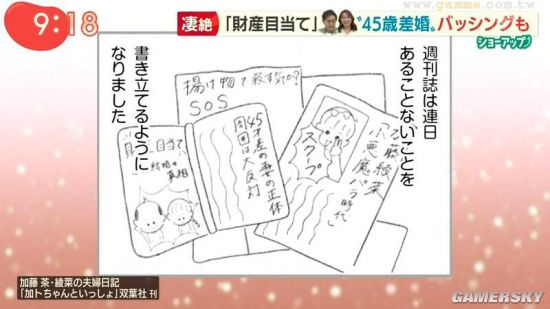 www.gamme.com.tw
9:18
凄絶
「財産目当て」
"45歳差婚"バッシングも
ショーアップ
週刊誌は連日
あることないことを
書き立てるように
なりました
揚げ物で殺す気か?
SOS
45才差の妻の正体
周囲は大反対
目当て
結婚の
真相
加藤綾菜
小悪魔
時代
スクープ
加藤 茶・綾菜の夫婦日記
「加トちゃんといっしょ」双葉社 刊
GAMERSKY